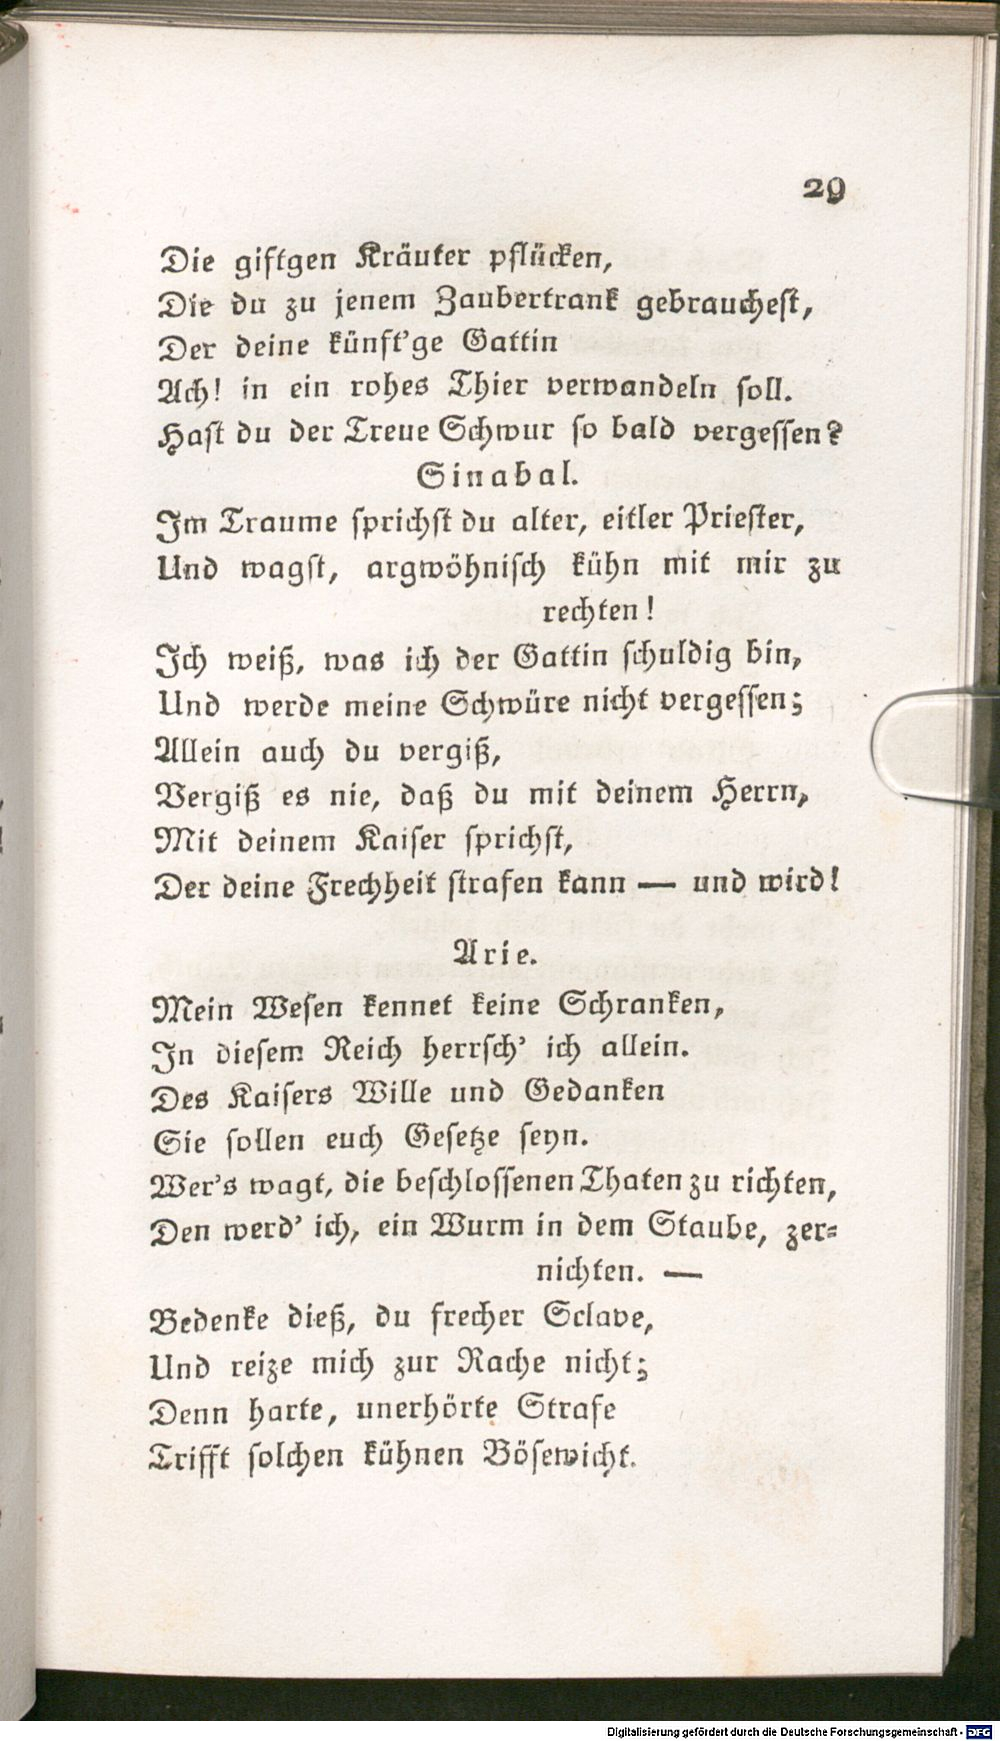 29
Die giftgen Kräuter pflücken,
Die du zu jenem Zaubertrank gebrauchest,
Der deine künft'ge Gattin
Ach! in ein rohes Thier verwandeln soll.
Hast du der Treue Schwur so bald vergessen?
Sinabal.
Im Traume sprichst du alter, eitler Priester,
Und wagst, argwöhnisch kühn mit mir zu
rechten!
Ich weiß, was ich der Gattin schuldig bin,
Und werde meine Schwüre nicht vergessen;
Allein auch du vergiß,
Vergiß es nie, daß du mit deinem Herrn,
Mit deinem Kaiser sprichst,
Der deine Frechheit strafen kann — und wird!
Arie.
Mein Wesen kennet keine Schranken,
In diesem Reich herrsch' ich allein.
Des Kaisers Wille und Gedanken
Sie sollen euch Gesetze seyn.
Wer's wagt, die beschlossenen Thaten zu richten,
Den werd' ich, ein Wurm in dem Staube, zer-
nichten. —
Bedenke dieß, du frecher Sclave,
Und reize mich zur Rache nicht;
Denn harte, unerhörte Strafe
Trifft solchen kühnen Bösewicht.
Digitalisierung gefördert durch die Deutsche Forschungsgemeinschaft - DFG